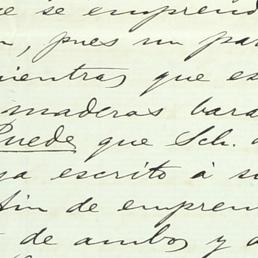 se se emprend
, pues un par
mientras que es
maderas bara
Puede que Sch.
ya escrito á s
fin de empren
de ambos y a